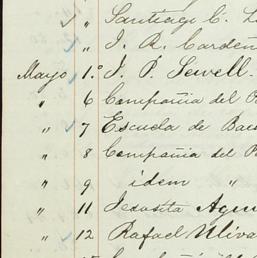 " Santiago C. L
" J. R. Cardeñ
Mayo 1.º J. P. Sewell.
" 6 Compañia del
" 7 Escuela de
" 8 Compañia del
" 9 idem "
" 11 Agu
" 12 Rafael Uliva